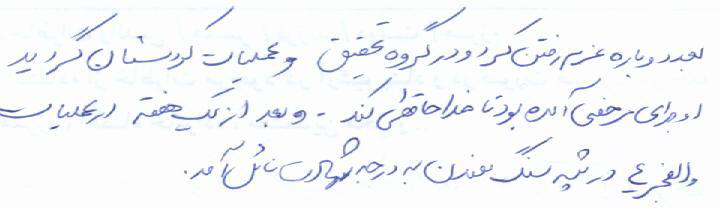 بعد دوباره عزم رفتن کرد و در گروه تحقیق و عملیات کردستان گردید
او برای مرخصی آمده بود تا خداحافظی کند. و بعد از یک هفته در عملیات
والفجر ۴ در تپه سنگ معدن به درجه شهادت نائل آمد.